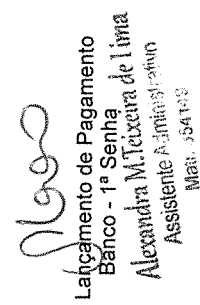 Lançamento de Pagamento
Banco - 1ª Senha
Alexandra M.Teixeira de Lima
Assistente Administrativo